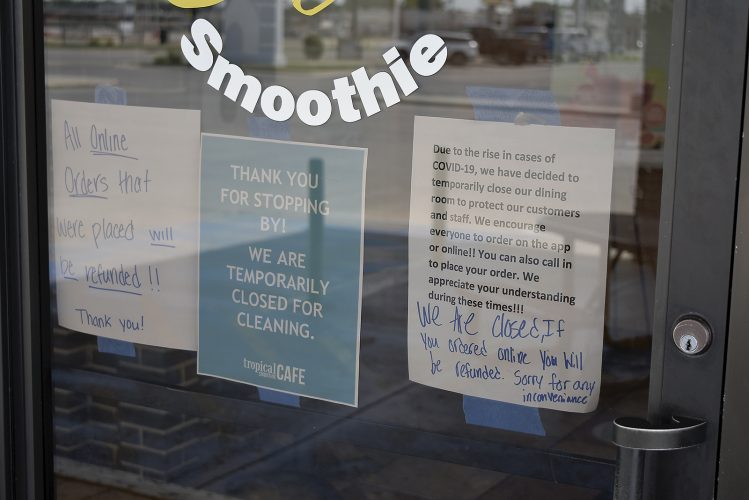 Smoothie
All Online
Orders that
were placed will
be refunded!!
Thank you!
THANK YOU
FOR STOPPING
BY!
WE ARE
TEMPORARILY
CLOSED FOR
CLEANING.
tropical
SMOOTHIE CAFE
Due to the rise in cases of
COVID-19, we have decided to
temporarily close our dining
room to protect our customers
and staff. We encourage
everyone to order on the app
or online!! You can also call in
to place your order. We
appreciate your understanding
during these times!!!
We Are closed, If
you ordered online you will
be refunded. Sorry for any
inconvenience